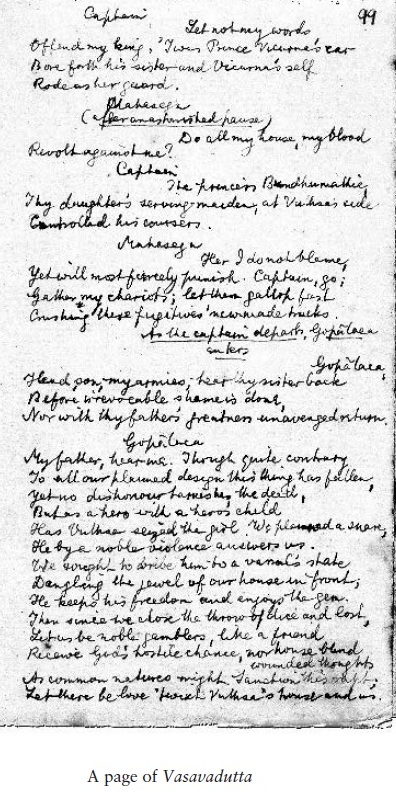 99
Captain
Let not my words
Offend my king, 'Twas Prince Vicurna's car
Bore forth his sister and Vicurna's self
Rode as her guard.
Mahasegn
(after an astonished pause)
Do all my house, my blood
Revolt against me?
Captain
The princess Bundhumathie,
Thy daughter's serving-maiden, at Vuthsa's side
Controlled his coursers.
Mahasegn
Her I do not blame,
Yet will most fiercely punish. Captain, go;
Gather my chariots; let them gallop fast
Crushing these fugitives' newmade tracks.
As the captain departs, Gopalaca
enters
Gopālaca,
Head, son, my armies; bear thy sister back
Before irrevocable shame is done,
Nor with thy father's greatness unavenged return.
Gopālaca
My father, hear me. Though quite contrary
To all our planned design this thing has fallen,
Yet no dishonour tarnishes the deed,
But as a hero with a hero's child
Has Vuthsa seized the girl. We planned a snare,
He by a noble violence answers us.
We sought to bribe him to a vassal's state
Dangling the jewel of our house in front;
He keeps his freedom and enjoys the gem.
Then since we chose the throw of dice and lost,
Let us be noble gamblers, like a friend
Receive God's hostile chance, nor house blind
wounded thoughts
As common natures might. Sanction this rapt;
Let there be love 'twixt Vuthsa's house and us.
A page of Vasavadutta